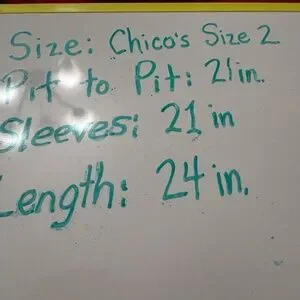 Size: Chico's Size 2
Pit to Pit: 21in.
Sleeves: 21 in
Length: 24 in.